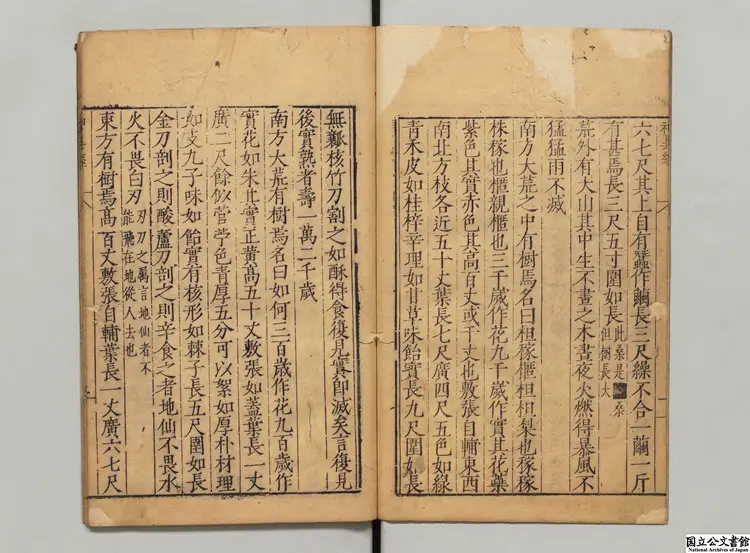 神異經
六七尺其上自有蠶作繭長三尺繰不合一繭一斤
有甚焉長三尺五寸圍如長 此桑是桑
但樹長大
荒外有大山其中生不晝之木晝夜火燃得暴風不
猛猛雨不滅
南方大荒之中有樹焉名曰柤稼櫃柤柤梨也稼稼
株稼也櫃親櫃也三千歲作花九千歲作實其花蘂
紫色其實亦色其高百丈或千丈也敷張自輔東西
南北方枝各近五十丈葉長七尺廣四尺五色如綠
青木皮如桂梓辛理如甘草味飴實長九尺圍如長
無瓤核竹刀割之如酥得食復見實即滅矣言復見
後實熟者壽一萬二千歲
南方大荒有樹焉名曰如何三百歲作花九百歲作
實花如朱其實正黃高五十丈敷張如蓋葉長一丈
廣二尺餘似菅苧色青厚五分可以絮如厚朴材理
如支九子味如飴實有核形如棘子長五尺圍如長
金刀剖之則酸蘆刀剖之則辛食之者地仙不畏水
火不畏白刃 刃刀之屬言地仙者不
能飛在地從人去也
東方有樹焉高百丈敷張自輔葉長一丈廣六七尺
国立公文書館
National Archives of Japan